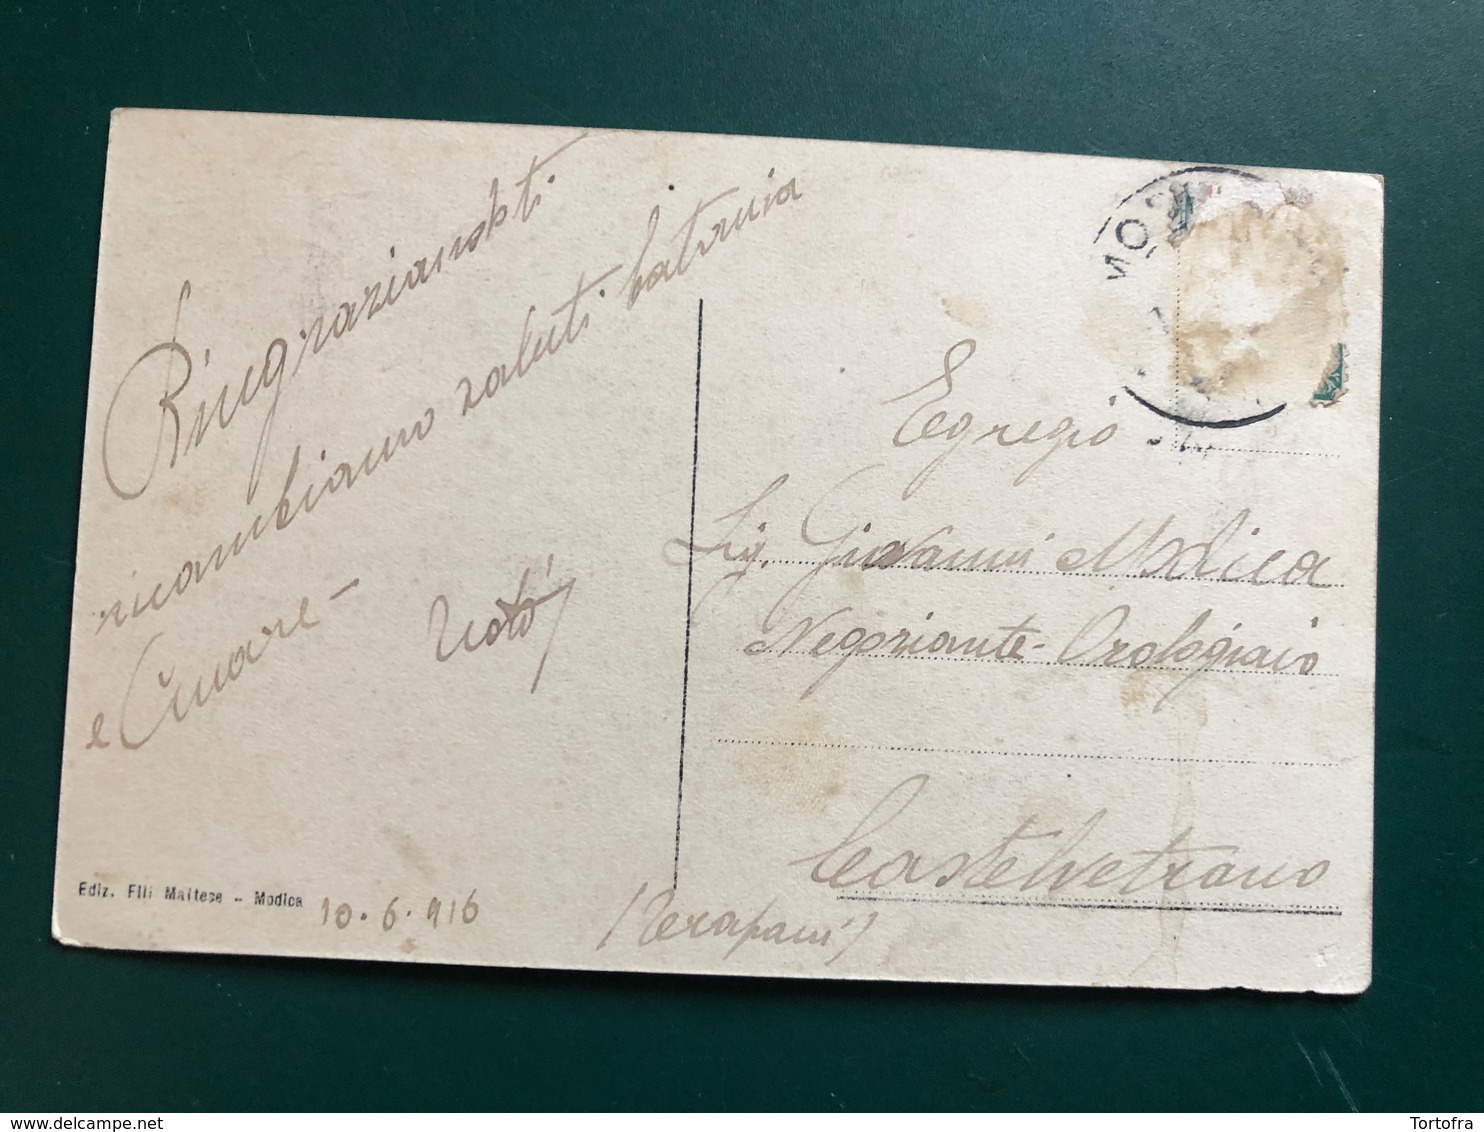 Ringraziandoti
ricambiamo saluti Catania
e Cuore -
Egregio
Sig. Giovanni Modica
Negoziante-Orologiaio
Castelvetrano
(Trapani)
Ediz. F.lli Maltese - Modica
10.6.916
MO
www.delcampe.net
Tortofra